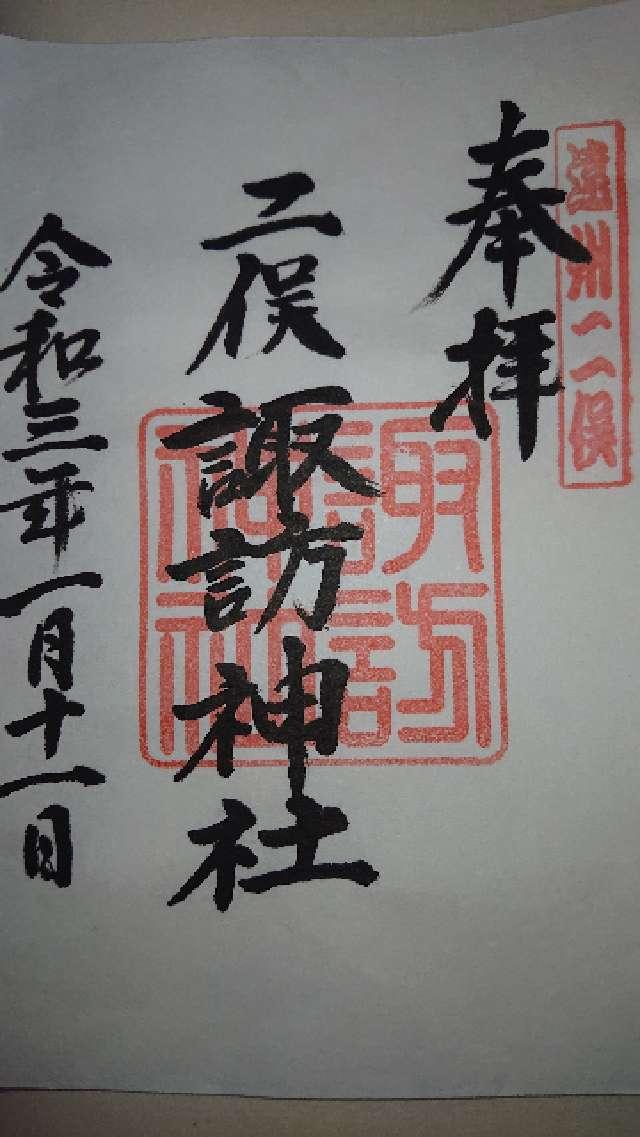 遠州二俣
奉拝
二俣諏訪神社
諏訪神社
令和三年一月十一日